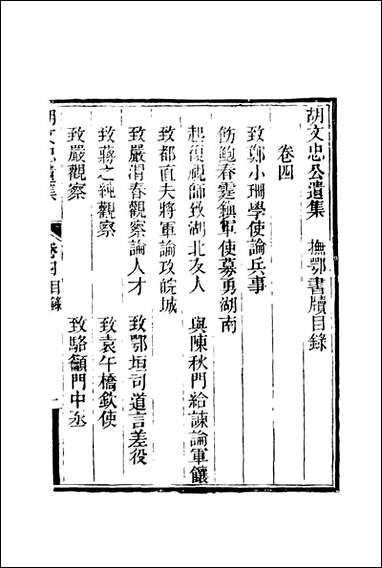 胡文忠公遺集　撫鄂書牘目錄
卷四
致鄭小珊學使論兵事
飭鮑春霆鎮軍使募勇湖南
起復視師致湖北友人　與陳秋門給諫論軍饟
致都直夫將軍論攻皖城
致嚴渭春觀察論人才　致鄂垣司道言差役
致蔣之純觀察　致袁午橋欽使
致嚴觀察　致駱籲門中丞
胡文忠遺集　卷四目錄　一